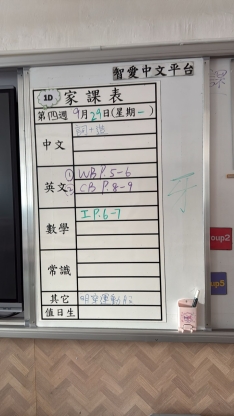 智愛中文平台
1D 家課表
第四週 9月29日(星期一)
中文
英文 ① WB P.5-6
② CB P.8-9
數學 工 P.6-7
常識
其它 明穿運動服
值日生
oup2
up5